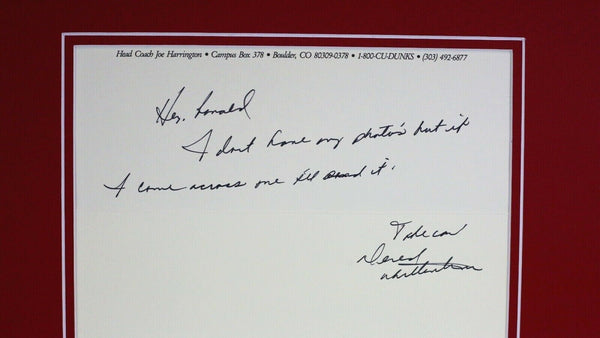 Head Coach Joe Harrington • Campus Box 378 • Boulder, CO 80309-0378 • 1-800-CU-DUNKS • (303) 492-6877
Hey. Ronald
I dont have any photo's but if
I come across one I'll send it.
Take care
Dereck
Whittenburg